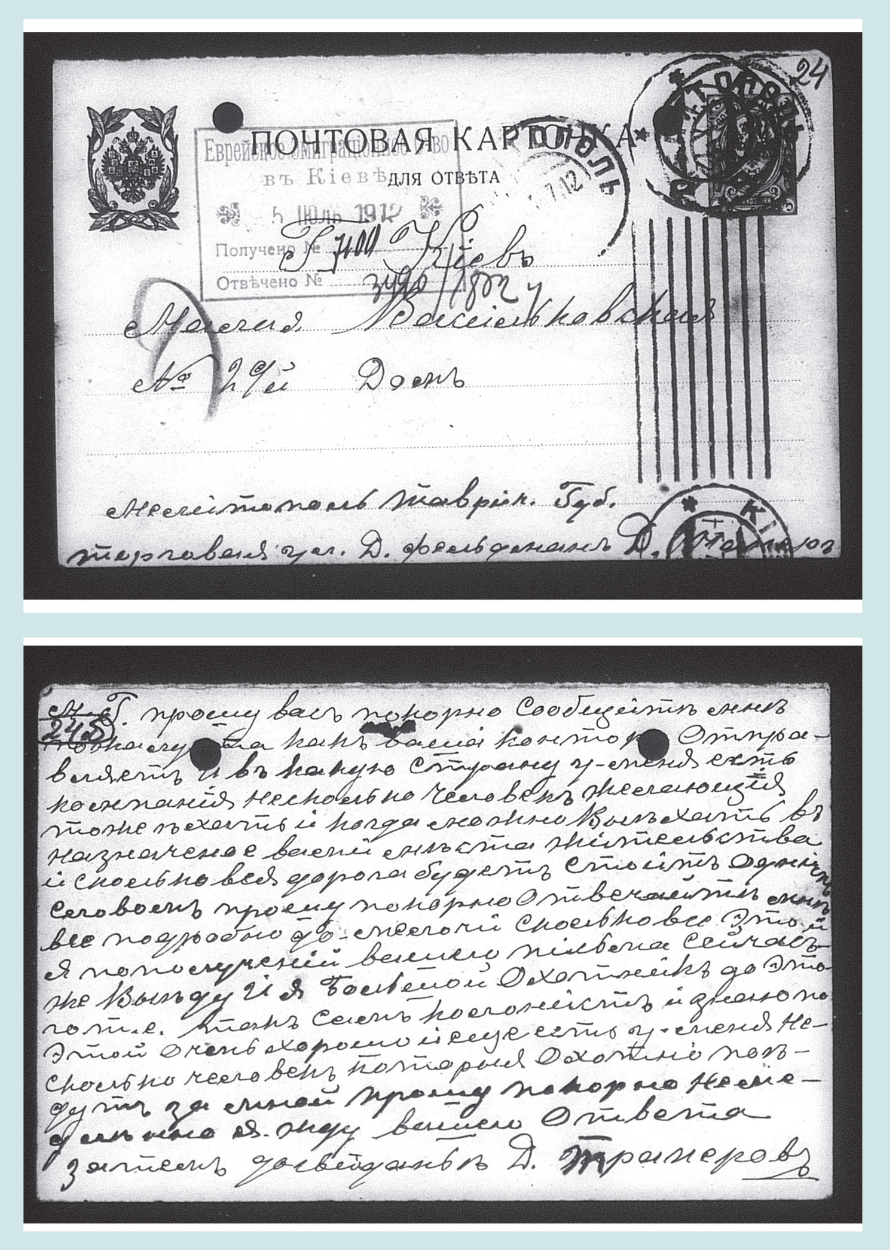 24
ПОЧТОВАЯ КАРТОЧКА
ДЛЯ ОТВѢТА
Еврейское Эмиграціонное О-во
въ Кіевѣ
5 ІЮЛЬ 1912
Получено № 7400
Отвѣчено №
Г. Кіевъ
Малая Васильковская
№ 29й Домъ
Мелитополь Таврич. Губ.
торговая ул. Д. фельдманъ Д.
М. Г. прошу васъ покорно сообщитъ мнѣ
245
пожалуйста какъ ваша контора Отпра-
вляетъ И въ какую Страну у-меня есть
компанія несколько Человекъ Желающія
тоже ѣхатъ и когда можно Выѣхатъ въ
назначеное вами мѣста Жительства
и сколько вся дорога будетъ Стоитъ Однимъ
Словомъ прошу покорно Отвечайтѣ мнѣ
все подробно до-мелочи сколько все Это и
я пополученіи вашего пісьма Сейчасъ
же Выѣду И я Большой Охотникъ до Это
го т.е. Такъ Самъ колонистъ и знаю по
Этой Очень хорошо и еще есть у-меня Не-
сколько человекъ которыя Охотно поѣ-
дутъ за мной прошу покорно Неме-
дленно я. жду вашего Ответа
Затемъ досвіданье Д. Трахтеровъ